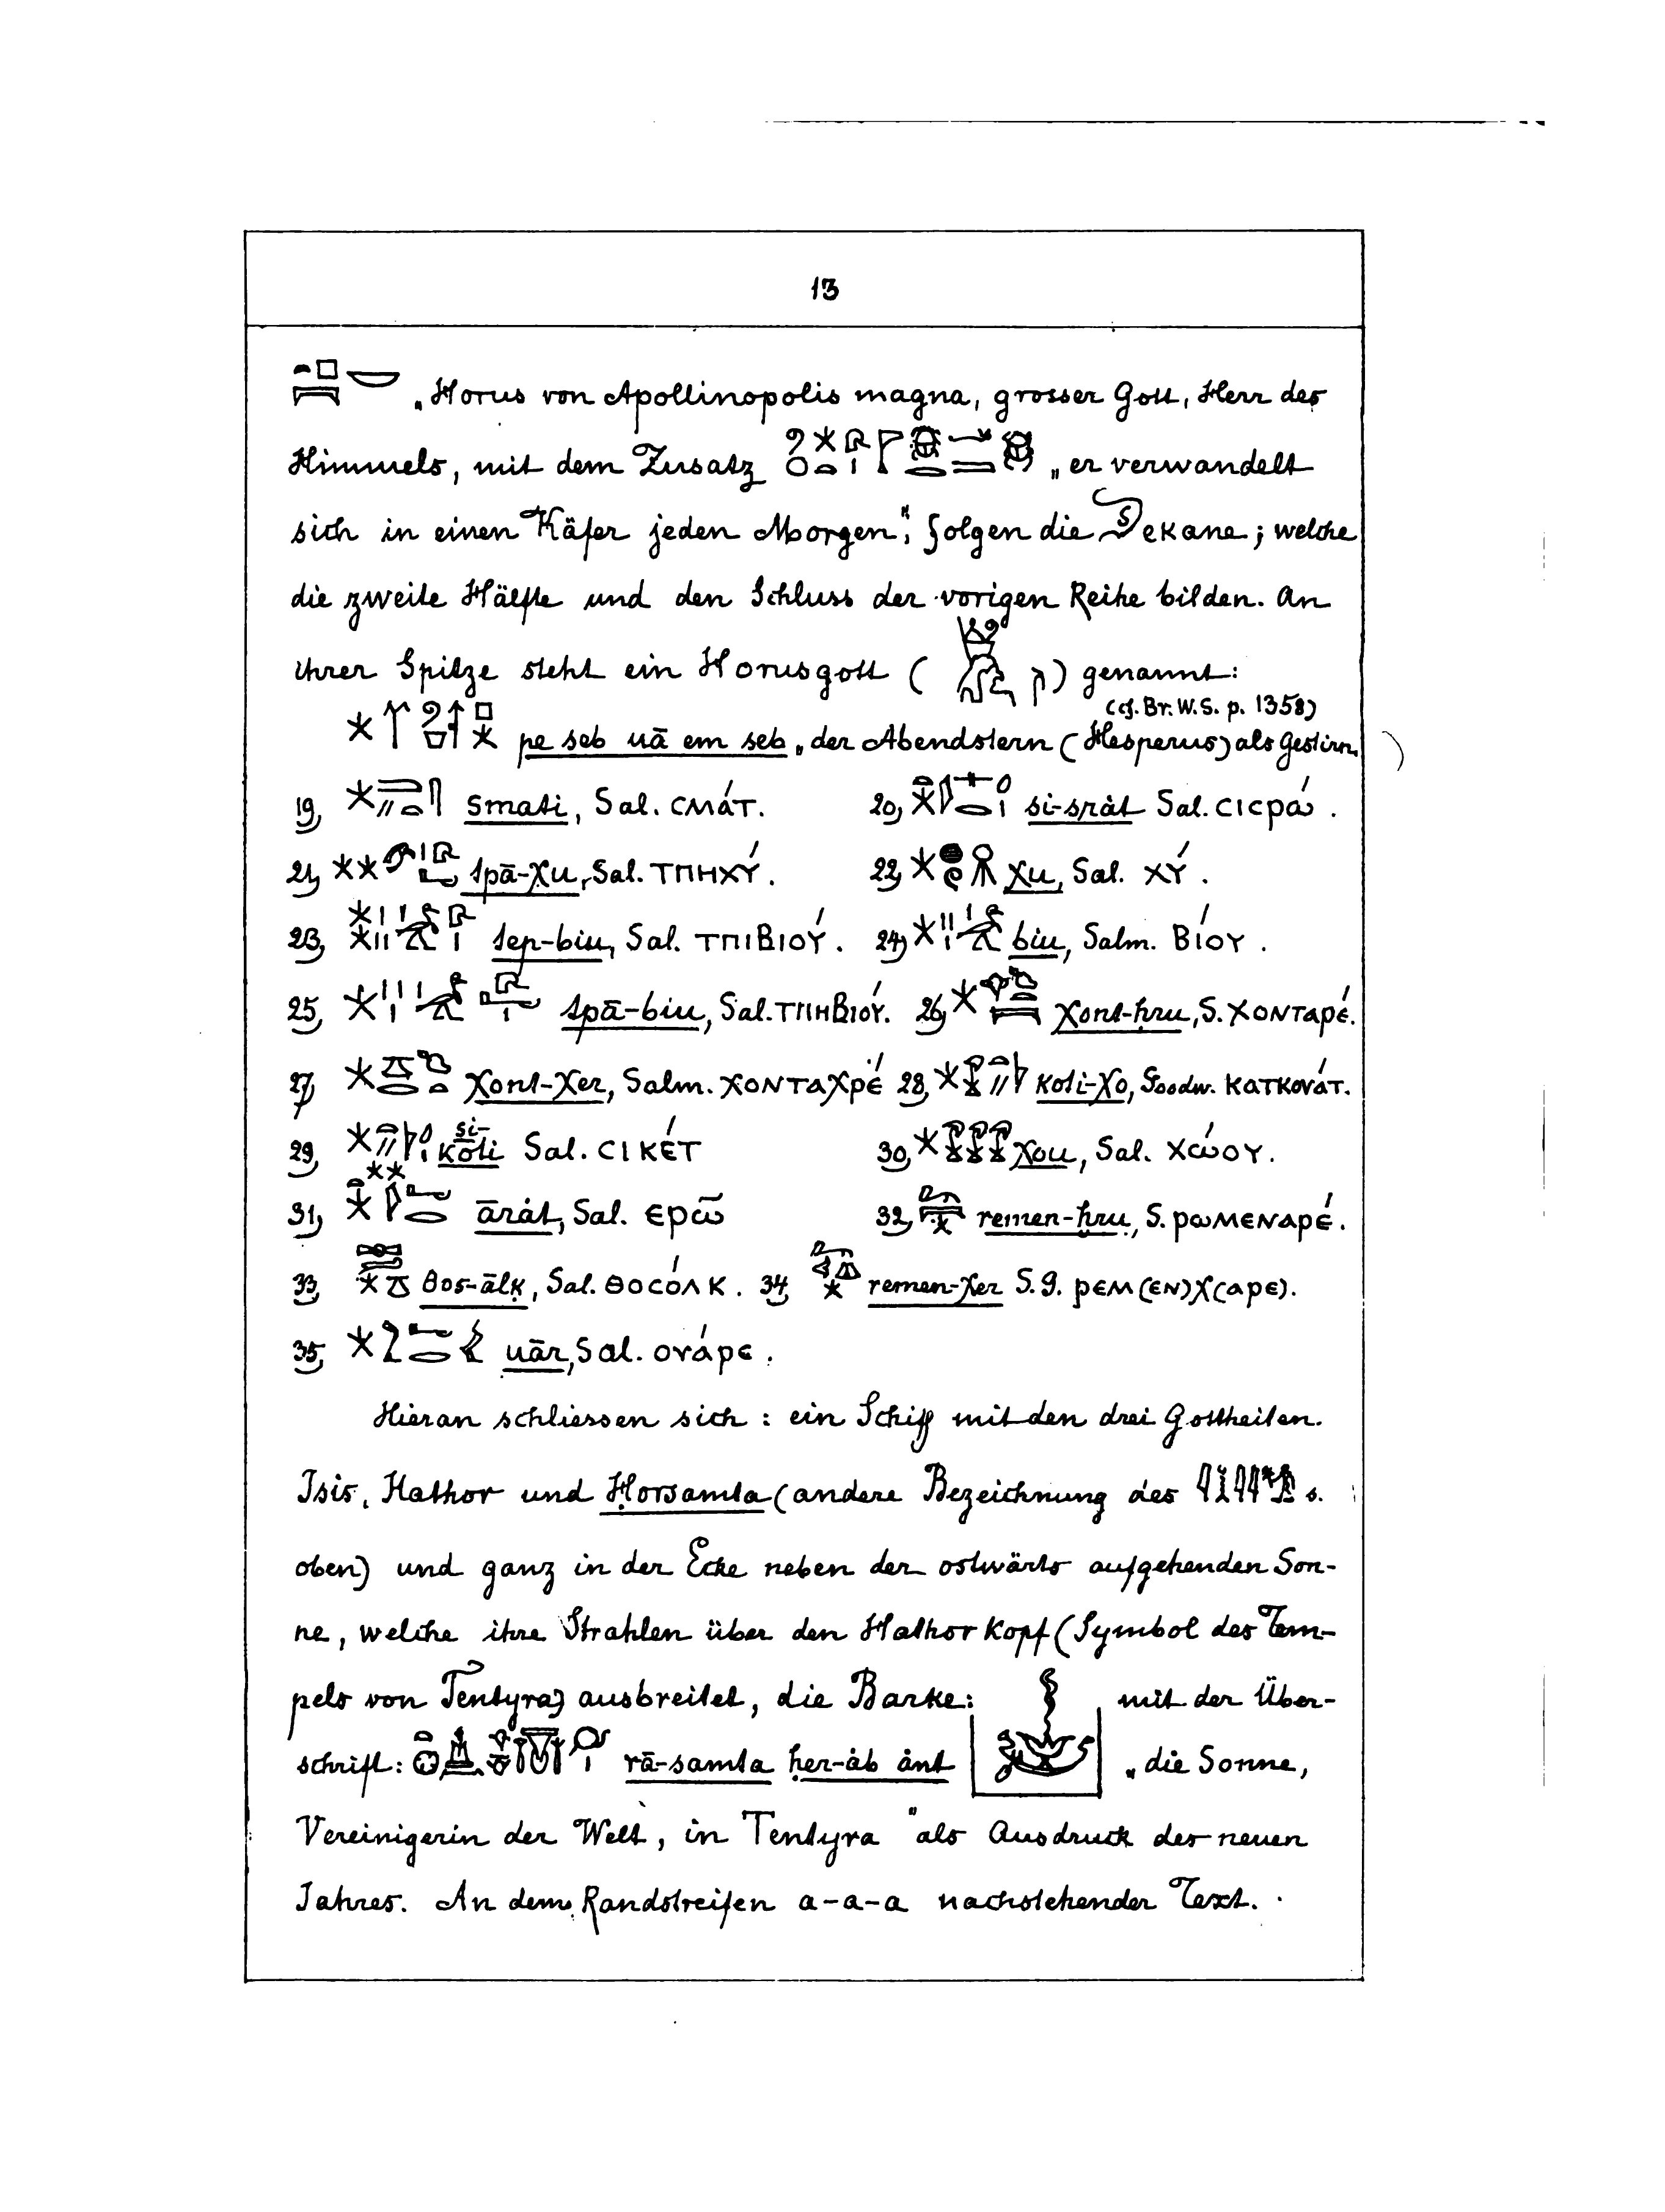 13
„Horus von Apollinopolis magna, grosser Gott, Herr des
Himmels, mit dem Zusatz „er verwandelt
sich in einen Käfer jeden Morgen“, folgen die Dekane; welche
die zweite Hälfte und den Schluss der vorigen Reihe bilden. An
ihrer Spitze steht ein Horusgott ( ) genannt:
(cf. Br. W. S. p. 1358)
pe seb uā em seb „der Abendstern (Hesperus) als Gestirn.
19, smati, Sal. СΜΆΤ. 20, si-srȧt Sal. СΙСΡώ.
21, tpā-χu, Sal. ΤΠΗΧΎ. 22, χu, Sal. ΧΎ.
23, tep-biu, Sal. ΤΠΙΒΙΟΎ. 24, biu, Salm. ΒΊΟΥ.
25, tpā-biu, Sal. ΤΠΗΒΙΟΎ. 26, χont-ḥru, S. ΧΟΝΤαρέ.
27, χont-χer, Salm. ΧΟΝΤαΧρέ 28, ḳoti-χo, Goodw. ΚαΤΚΟΥάΤ.
29, si-ḳoti Sal. СΙΚΈΤ 30, χou, Sal. ΧώΟΥ.
31, ārȧt, Sal. Єρῶ 32, remen-ḥru, S. ρωΜЄΝαρέ.
33, θos-ālḳ, Sal. ΘΟСΌΛΚ. 34, remen-χer S. g. ρЄΜ(ЄΝ)Χ(αρЄ).
35, uār, Sal. ΟΥάρЄ.
Hieran schliessen sich: ein Schiff mit den drei Gottheiten.
Isis, Hathor und Ḥorsamta (andere Bezeichnung des s.
oben) und ganz in der Ecke neben der ostwärts aufgehenden Son-
ne, welche ihre Strahlen über den Hathorkopf (Symbol des Tem-
pels von Tentyra) ausbreitet, die Barke: mit der Über-
schrift: rā-samta ḥer-ȧb ȧnt „die Sonne,
Vereinigerin der Welt, in Tentyra“ als Ausdruck des neuen
Jahres. An dem Randstreifen a-a-a nachstehender Text.